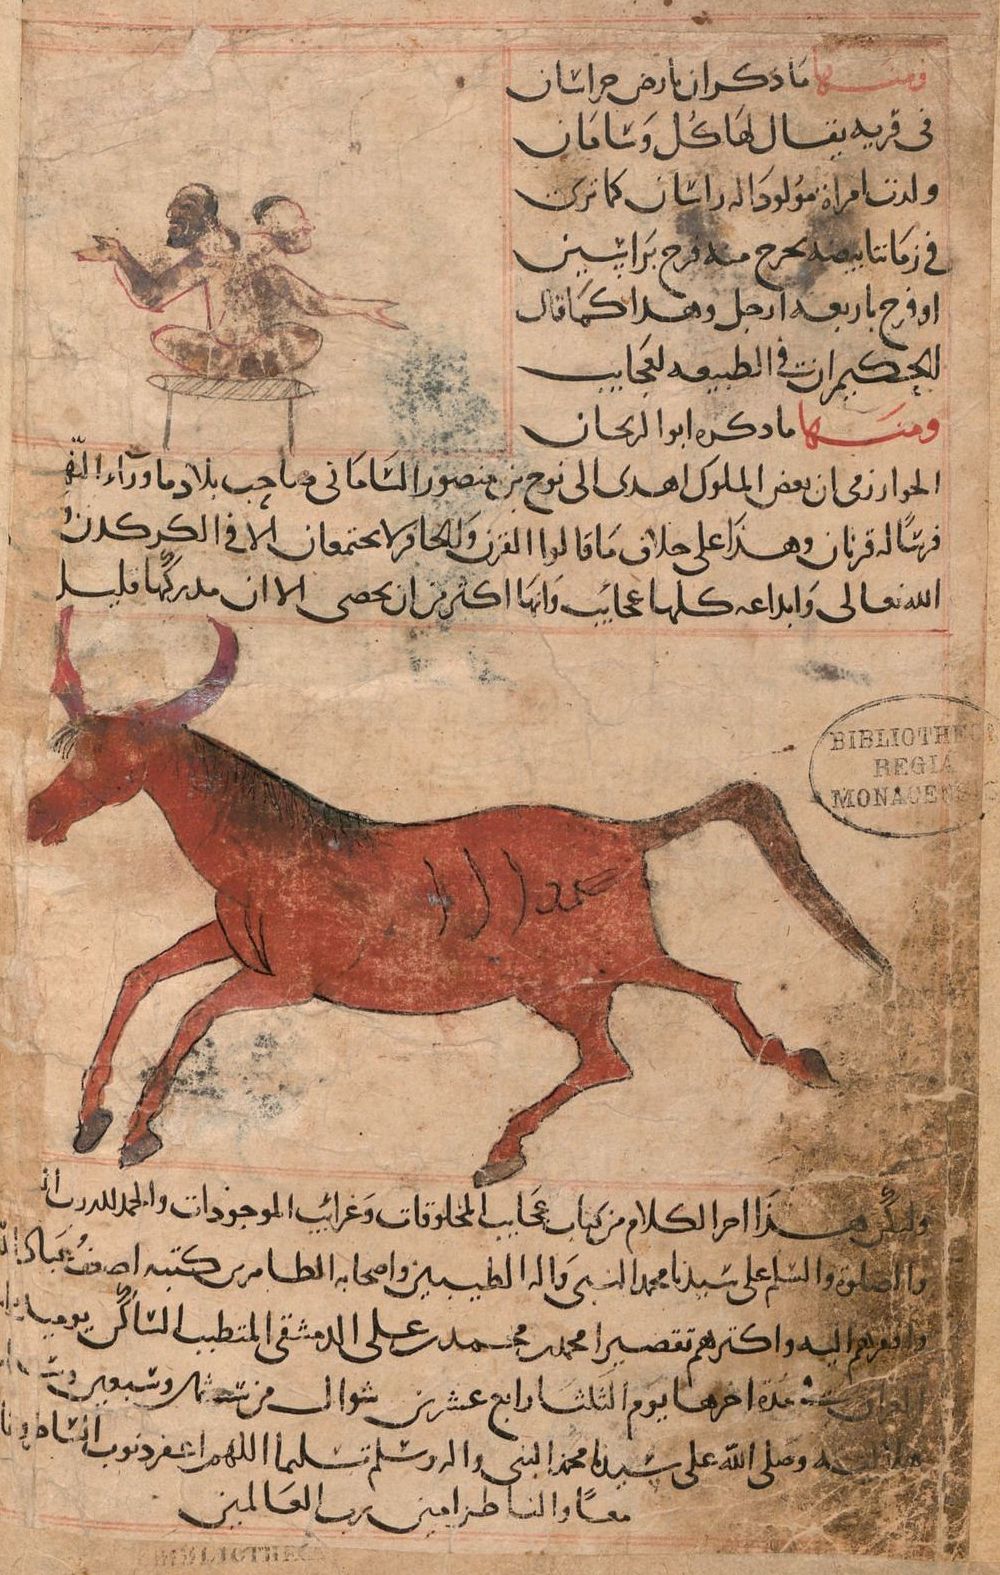 ومنها ما ذكر ان بارض خراسان
فى قرية يقال لها كل وشامان
ولدت امراة مولودا له راسان كما ترى
فى زماننا بيضة يخرج منه فرخ براسين
او فرخ باربعة ارجل وهذا كما قال
الحكيم ان فى الطبيعه لعجايب
ومنها ما دكره ابوا الريحان
الخوارزمى ان بعض الملوك اهدى الى نوح بن منصور السامانى صاحب بلاد ما ورآء النهر
فرسًا له قرنان وهذا على خلاف ما قالوا القرن والحافر لا يجتمعان الا فى الكركدن
الله تعالى وابداعه كلها عجائب وانها اكثر من ان يحصى الا ان مدركها قليل
BIBLIOTHECA
REGIA
MONACENSIS
وليكن هذا اخر الكلام من كتاب عجايب المخلوقات وغرائب الموجودات والحمد لله رب
والصلوة والسلم على سيدنا محمد النبى واله الطيبين واصحابه الطاهرين كتبه اضعف عباد الله
وافقرهم اليه واكثرهم تقصيرا محمد بن محمد بن على الدمشقى المتطبب الساكن يوميذ
فى مدة اخرها يوم الثلثا رابع عشرين شوال من سنة ثمان وسبعين
وصلى الله على سيدنا محمد النبى واله وسلم تسليما اللهم اغفر ذنوب
معًا والناظر امين يرب العالمين
BIBLIOTHECA